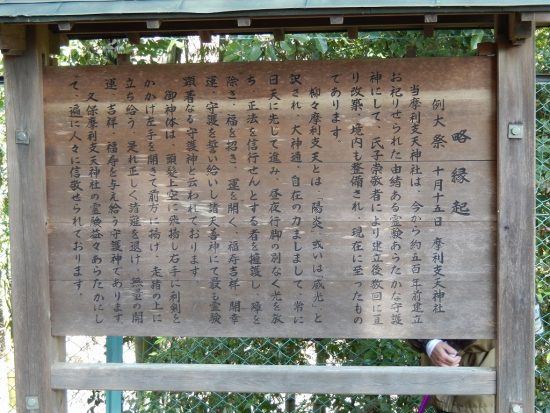 略縁起
例大祭 十月十五日 摩利支天神社
当摩利支天神社は、今から約五百年前建立
お祀りせられた由緒ある霊験あらたかな守護
神にして、氏子崇敬者により建立後数回に亘
り改築、境内も整備され、現在に至ったもの
であります。
抑々摩利支天とは、陽炎、或いは威光、と
訳され、大神通、自在の力ましまして、常に
日天に先して進み、昼夜行脚の別なく光を放
ち、正法を信行せんとする者を擁護し、障を
除き、福を招き、運を開く、福寿吉祥、開幸
運、守護を誓い給いし諸天善神にて最も霊験
顕著なる守護神と云われて居ります
御神体は、頭髪上空に発揚し右手に利剣を
かかげ左手を開きて前方に掲げ、走猪の上に
立ち給う、是れ正しく諸難を退け、無量の開
運、吉祥、福寿を与え給う守護神であります。
又保摩利支天神社の霊験益々あらたかにし
て、遍に人々に信敬せられております。